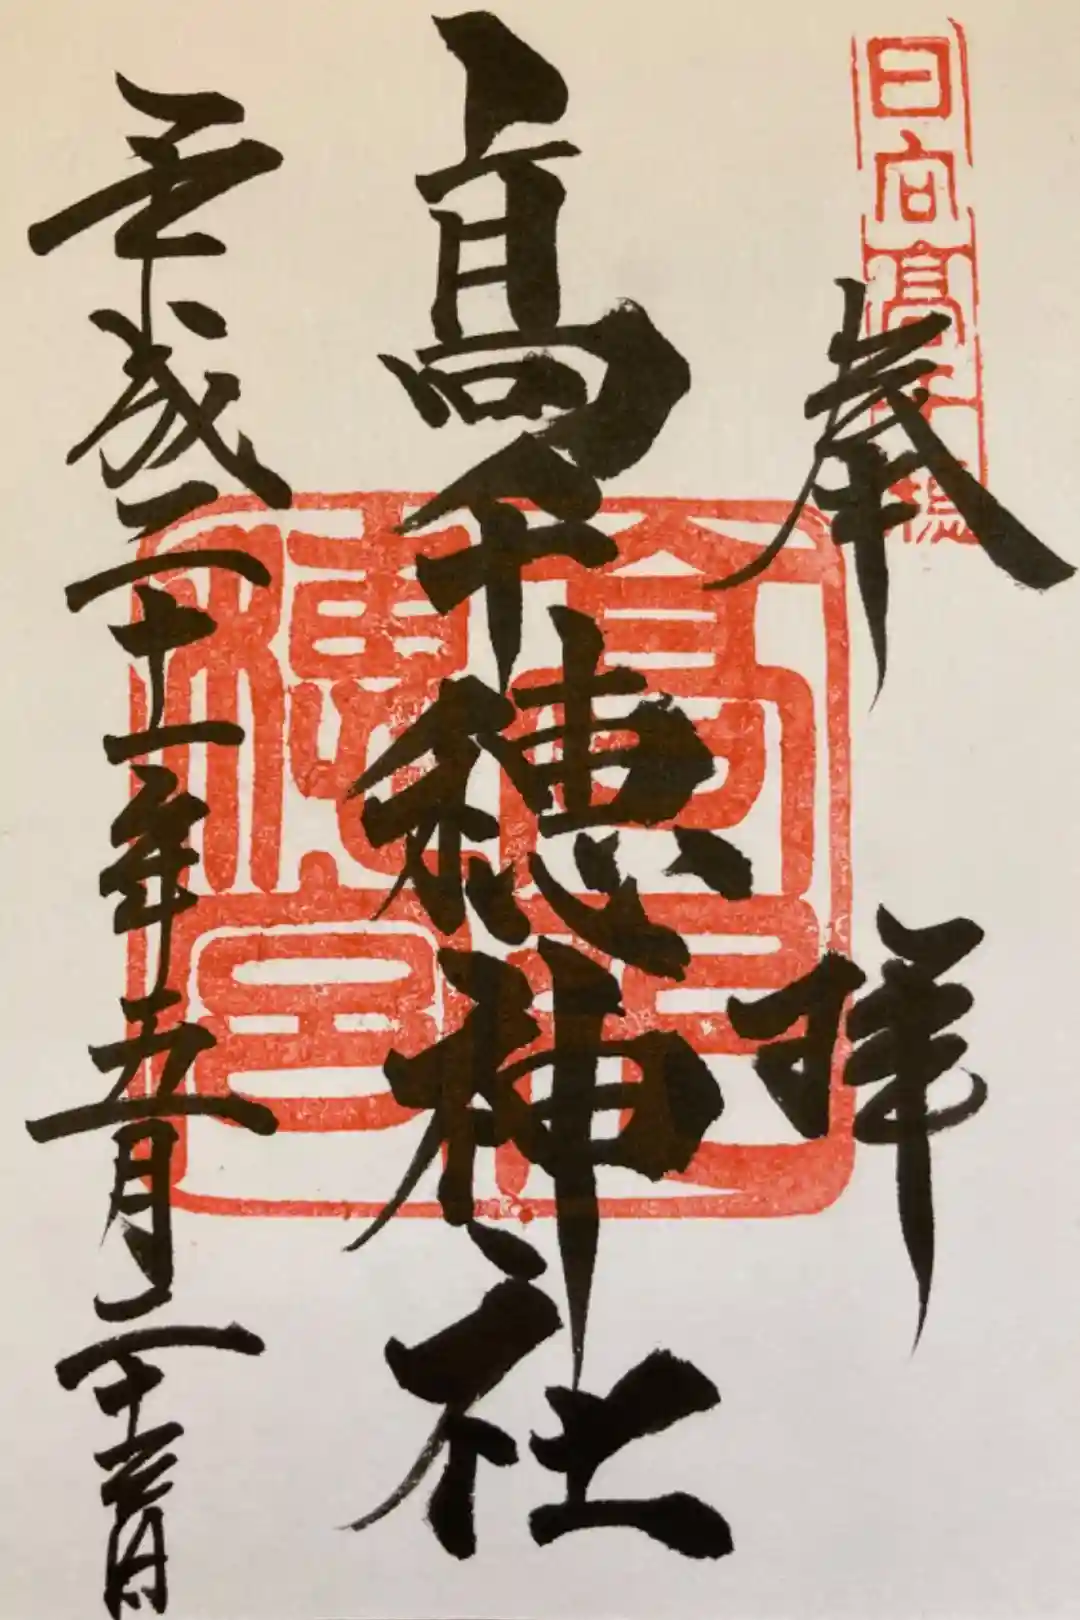 日向高千穂
奉拝
髙千穂神社
高千
穂宮
平成二十一年五月二十六日